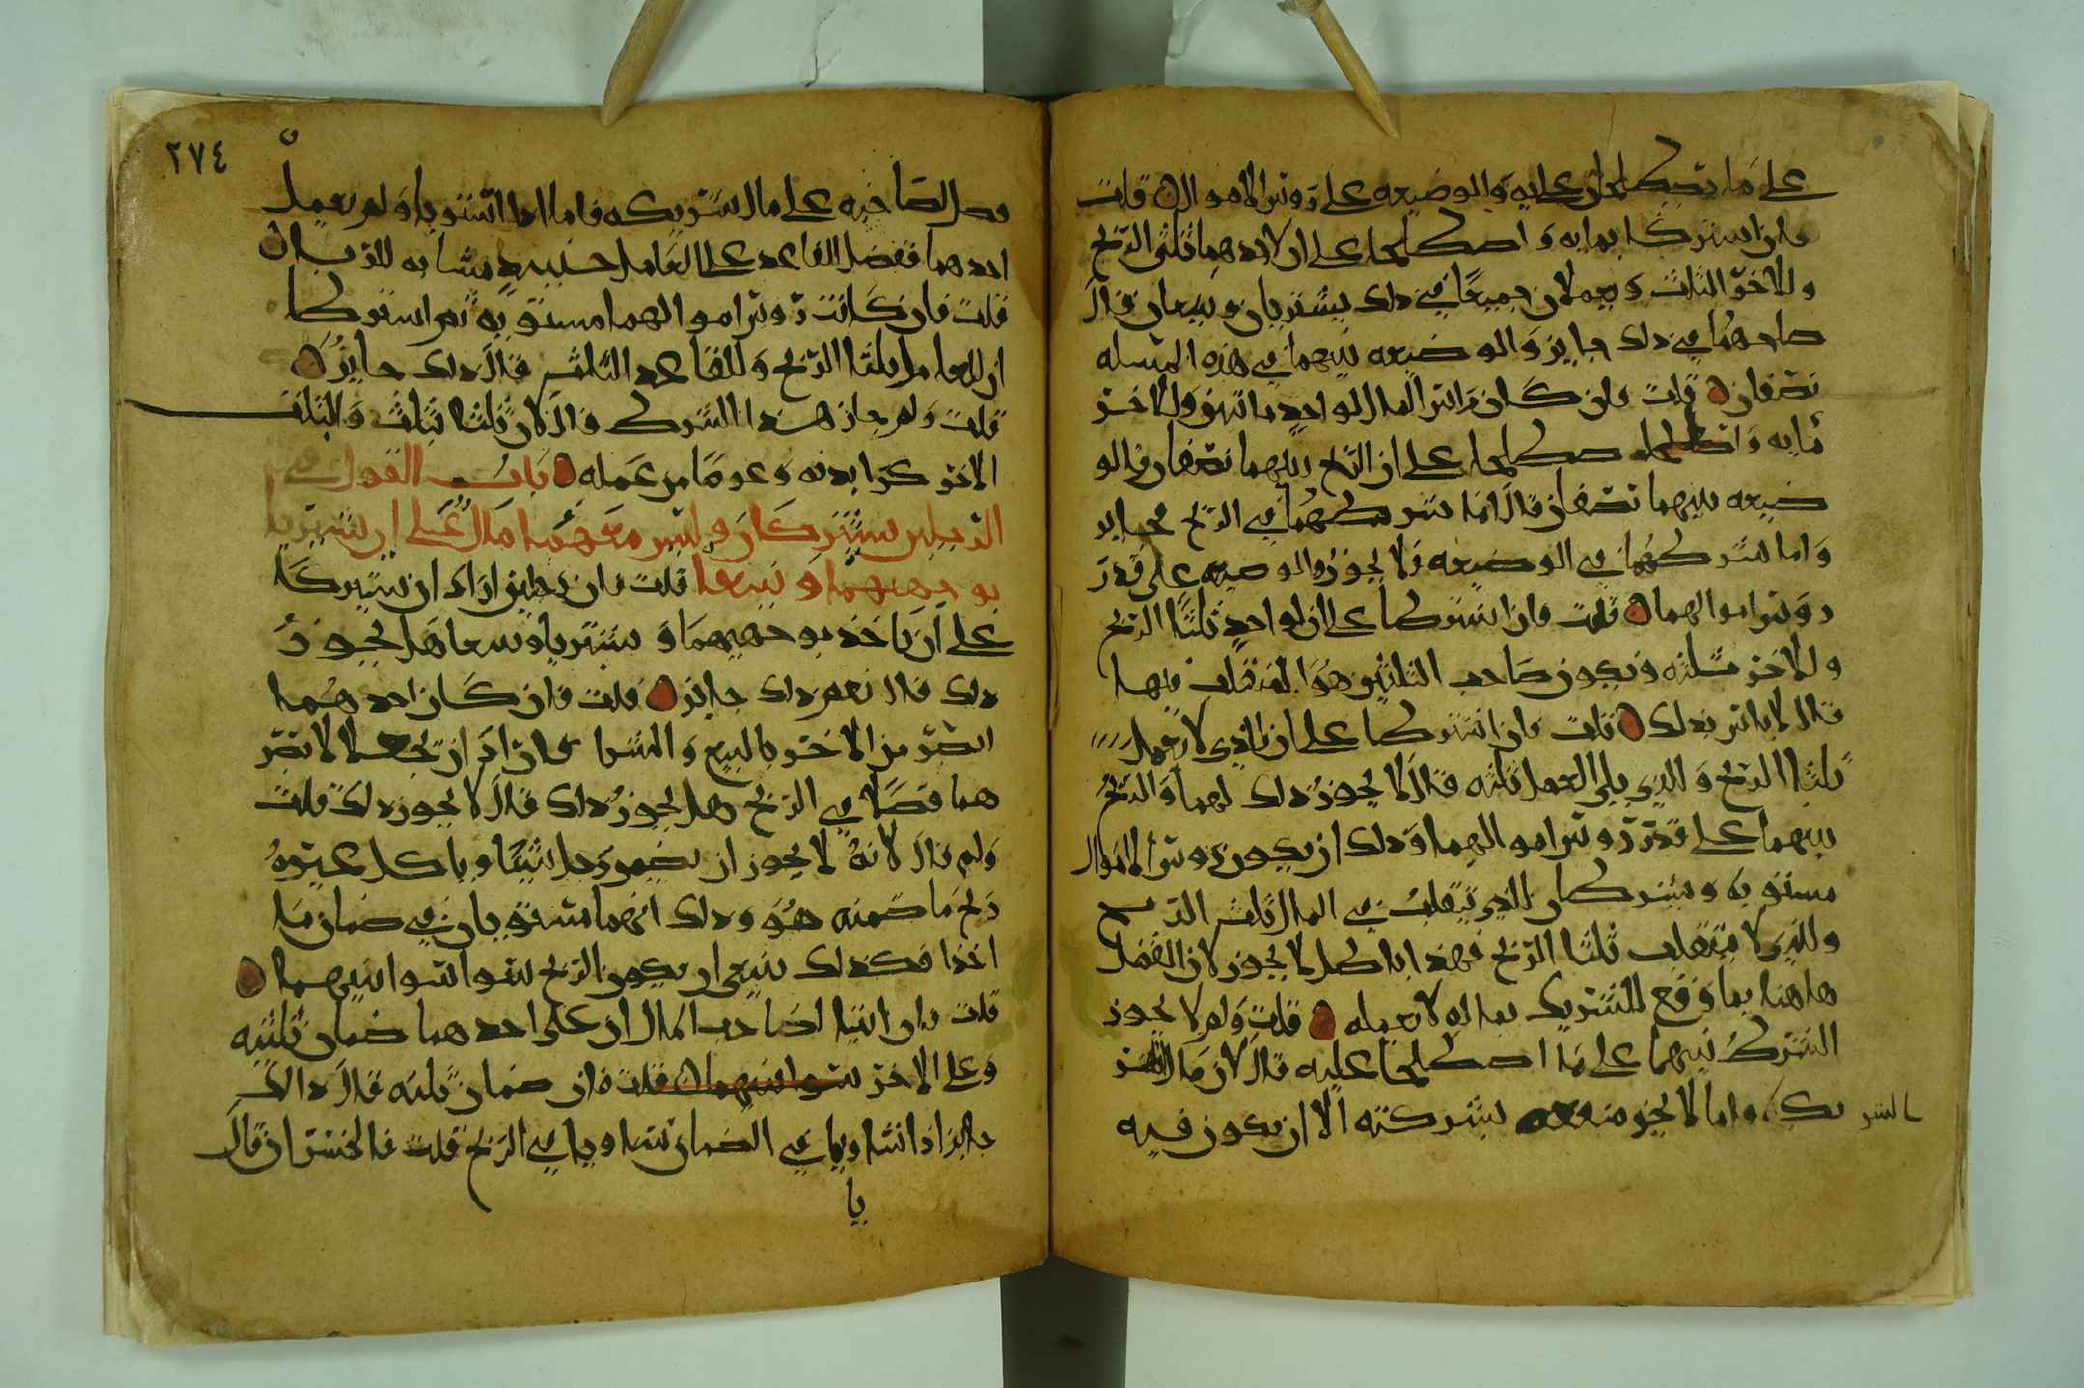 على ما يصطلحان عليه والوضيعه على روس الاموال قلت
فان اشتركا بمايه واصطلحا على ان لاحدهما ثلثي الربح
وللاخر الثلث ويعملان جميعا في ذلك يشتريان ويبيعان قال
صلحهما في ذلك جايز والوضيعه بينهما في هذه المسله
نصفان قلت فان كان راس المال لواحد ماتين وللاخر
مايه واصطلحا على ان الربح بينهما نصفان والو
ضيعه بينهما نصفان قال اما شركهما في الربح فجايز
واما شركهما في الوضيعه فلا يجوز والوضيعه على قدر
روس اموالهما قلت فان اشتركا على ان لواحد ثلثا الربح
وللاخر ثلثه ويكون صاحب الثلثين هو المتقلب فيها
قال لا باس بذلك قلت فان اشتركا على ان للذي لا يعمل
ثلثا الربح وللذي يلي العمل ثلثه قال لا يجوز ذلك لهما والربح
بينهما على قدر روس اموالهما وذلك ان يكون روس الاموال
مستويه ويشتركان للذي يتقلب في المال ثلث الربح
وللذي لا يتقلب ثلثا الربح فهذا باطل لا يجوز لان الفضل
هاهنا يما وقع للشريك بماله لا بعمله قلت ولم لا يجوز
الشرك بينهما على ما اصطلحا عليه قال لان مال
الشر
يك وانما لا يجز منعه بشركته الا ان يكون فيه
٢٧٤
فضل لصاحبه على مال شريكه فاما اذا استويا ولم يعمل
احدهما ففضل القاعد على العامل مشابه للربا
قلت فان كانت روس اموالهما مستويه ثم اشتركا
ان للعامل ثلثا الربح وللقاعد الثلث قال ذلك جايز
قلت ولم جاز هذا الشرك قال لان ثلثا ثلث والثلث
الاخر كرا بدنه وعوضا من عمله باب القول في
الرجلين يشتركان وليس معهما مال على ان يشتريا
بوجههما ويبيعا قلت فان رجلين ارادا ان يشتركا
على ان ياخذ بوجههما ويشتريا ويبيعا هل يجوز
ذلك قال نعم ذلك جايز قلت فان كان احدهما
ابصر من الاخر بالبيع والشرا فاراد ان يجعلا لابصر
هما فضلا في الربح هل يجوز ذلك قال لا يجوز ذلك قلت
ولم قال لانه لا يجوز ان يضمن رجل شيا وياكل غيره
ربح ما ضمنه هو وذلك انهما مستويان في ضمان ما
اخذا فكذلك ينبغي ان يكون الربح سوا سوا بينهما
قلت فان اشترطا لصاحب المال ان على احدهما ضمان ثلثيه
وعلى الاخر سوا بينهما قلت فان ضمان ثلثه قال ذالك
جايز اذا تساويا في الضمان تساويا في الربح قلت فالخسران قال
يا